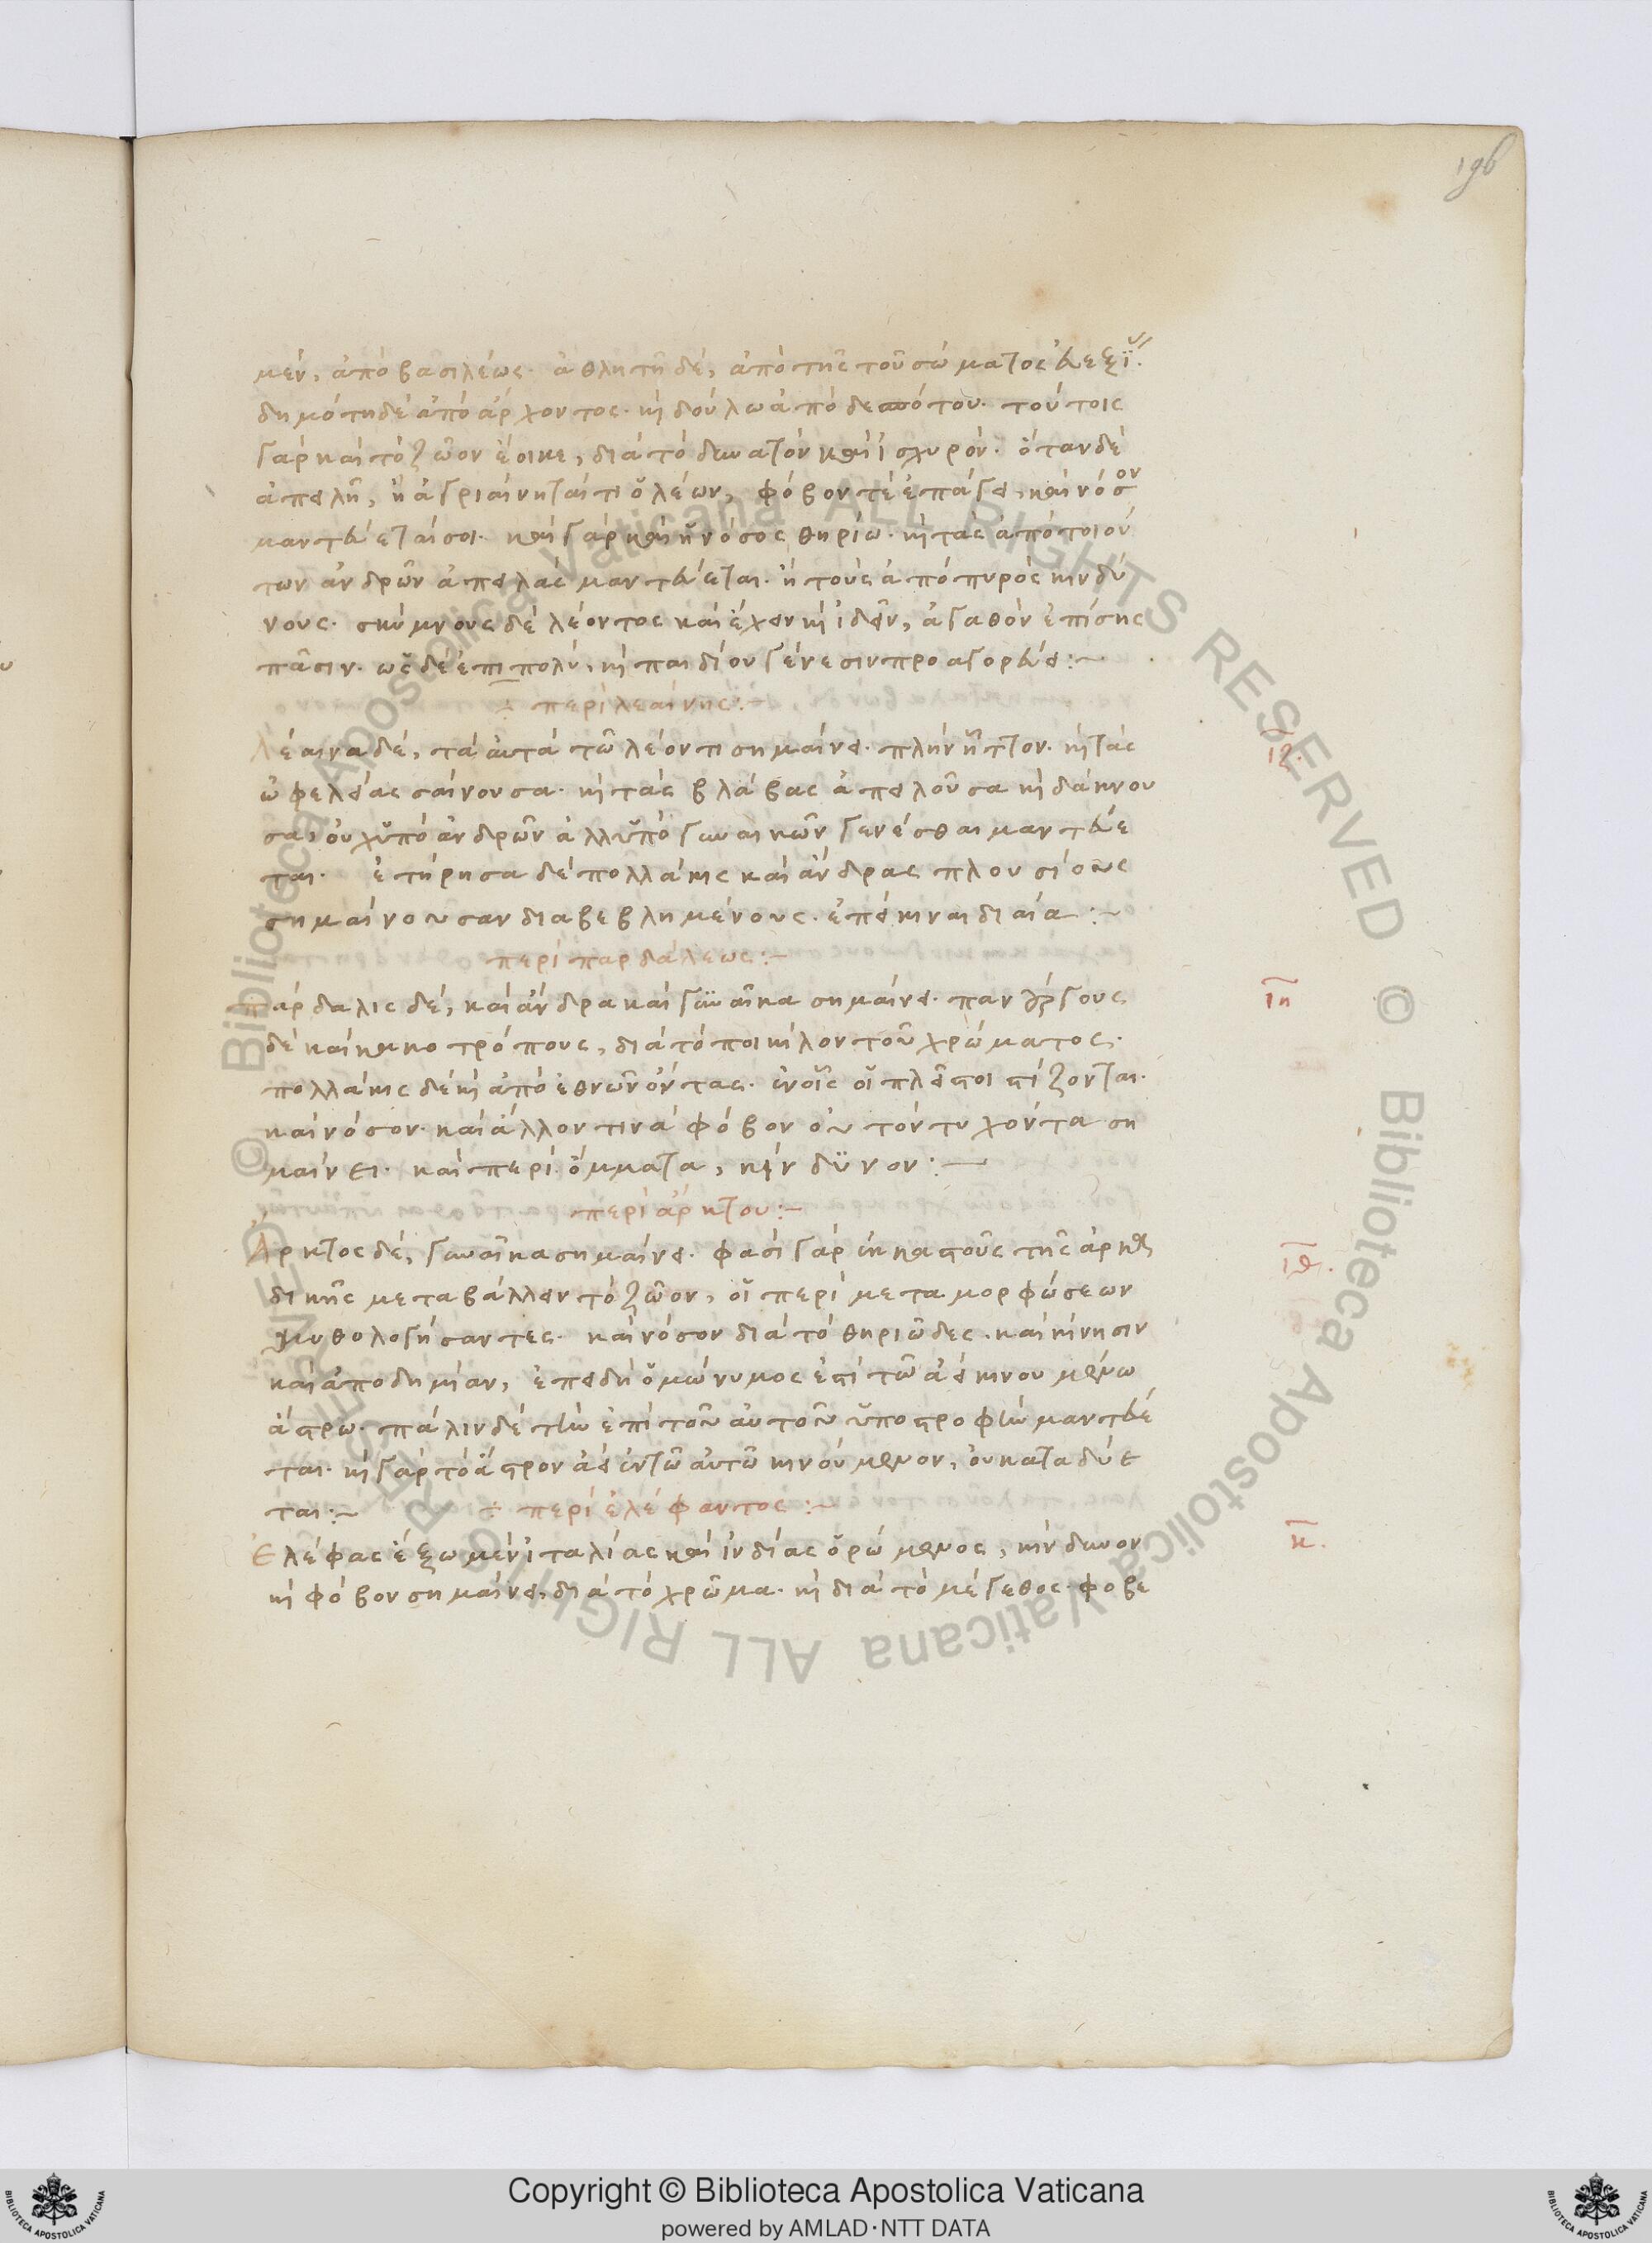 196
μὲν, ἀπὸ βασιλέως. ἀθλητῆ δὲ, ἀπὸ τῆς τοῦ σώματος εὐεξί
δημότη δὲ ἀπὸ ἄρχοντος. κὶ δούλω ἀπὸ δεσπότου. τούτοις
γὰρ καὶ τὸ ζῶον ἔοικε, διὰ τὸ δυνατὸν καὶ ἰσχυρόν. ὅταν δὲ
ἀπειλῆ, ἢ ἀγριαίνηταί τι ὁ λέων, φόβον τὲ ἐπάγει, καὶ νόσον
μαντεύεταί σοι. καὶ γὰρ καὶ ἡ νόσος θηρίω. κὶ τὰς ἀπὸ τοιού
των ἀνδρῶν ἀπειλὰς μαντεύεται. ἢ τοὺς ἀπὸ πυρὸς κινδύ
νους. σκύμνους δὲ λέοντος καὶ ἔχειν κὶ ἰδεῖν, ἀγαθὸν ἐπίσης
πᾶσιν. ὡς δὲ ἐπιπολὺ, κὶ παιδίου γένεσιν προαγορεύει:~
÷ περὶ λεαίνης:~
Λέαινα δὲ, τὰ αὐτὰ τῶ λέοντι σημαίνει. πλὴν ἧττον. κὶ τὰς
ιζ.
ὠφελείας σαίνουσα. κὶ τὰς βλάβας ἀπειλοῦσα κὶ δάκνου
σα, οὐχ ὑπὸ ἀνδρῶν ἀλλ ὑπὸ γυναικῶν γενέσθαι μαντεύε
ται. ἐτήρησα δὲ πολλάκις καὶ ἄνδρας πλουσίους
σημαίνουσαν διαβεβλημένους. ἐπὶ κιναιδιαία:~
περὶ παρδάλεως:~
Πάρδαλις δὲ, καὶ ἄνδρα καὶ γϋναῖκα σημαίνει. πανούργους
ιη
δὲ καὶ κακοτρόπους, διὰ τὸ ποικίλον τοῦ χρώματος.
πολλάκις δὲ κὶ ἀπὸ ἐθνῶν ὄντας. ἐν οἷς οἱ πλεῖστοι στίζονται.
καὶ νόσον. καὶ ἄλλον τινὰ φόβον οὐ τὸν τυχόντα ση
μαίνει. καὶ περὶ ὄμματα, κίνδϋνον:~
περὶ ἄρκτου:~
Ἄρκτος δὲ, γυναῖκα σημαίνει. φασὶ γὰρ ἐκ καστοῦς τῆς ἀρκα
ιθ.
δικῆς μεταβάλλειν τὸ ζῶον, οἱ περὶ μεταμορφώσεων
μυθολογήσαντες. καὶ νόσον διὰ τὸ θηριῶδες. καὶ κίνησιν
καὶ ἀποδημίαν, ἐπειδὴ ὁμώνυμος ἐστὶ τῶ ἀεικινουμένω
ἄστρω. πάλιν δὲ τὴν ἐπὶ τοῦ αὐτοῦ ὑποστροφὴν μαντεύε
ται. κὶ γὰρ τὸ ἄστρον ἀεὶ ἐν τῶ αὐτῶ κινούμενον, οὐ καταδύε
ται:~ ÷ περὶ ἐλέφαντος:~
Ἐλέφας ἔξω μὲν ἰταλίας καὶ ἰνδίας ὁρώμενος, κίνδυνον
κ.
κὶ φόβον σημαίνει, διὰ τὸ χρῶμα. κὶ διὰ τὸ μέγεθος. φοβε
© Biblioteca Apostolica Vaticana ALL RIGHTS RESERVED © Biblioteca Apostolica Vaticana ALL RIGHTS RESERVED
Copyright © Biblioteca Apostolica Vaticana
powered by AMLAD·NTT DATA
BIBLIOTECA APOSTOLICA VATICANA
BIBLIOTECA APOSTOLICA VATICANA